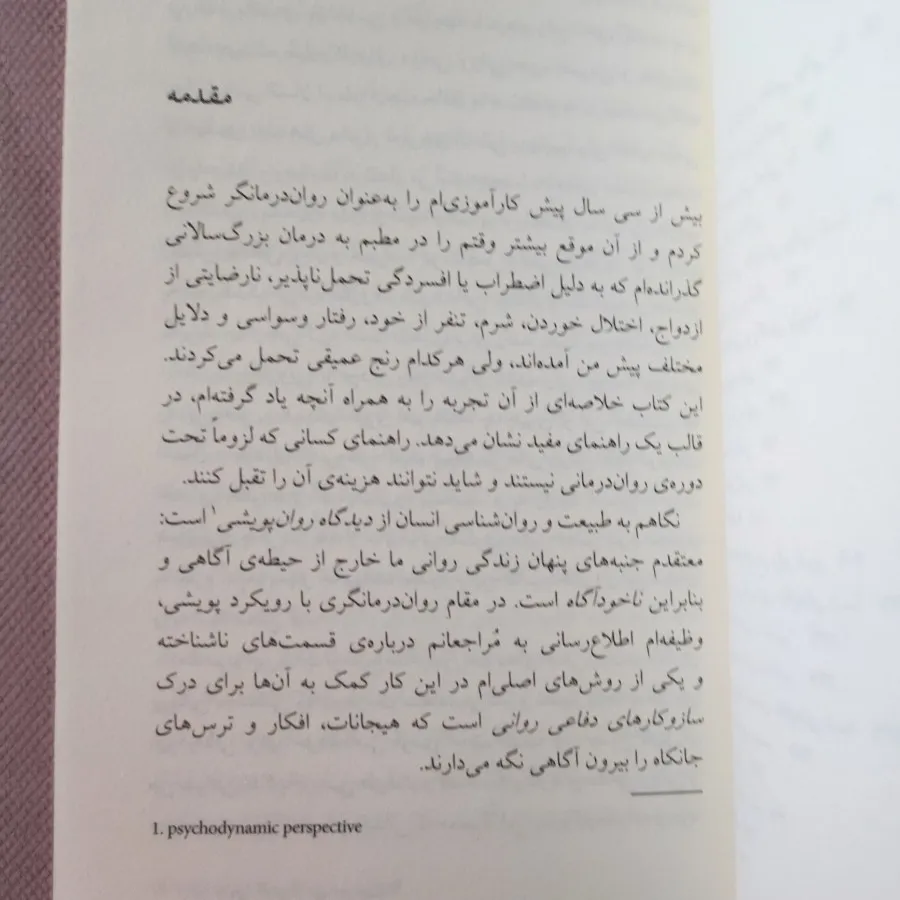 مقدمه
بیش از سی سال پیش کارآموزی‌ام را به‌عنوان روان‌درمانگر شروع
کردم و از آن موقع بیشتر وقتم را در مطبم به درمان بزرگ‌سالانی
گذرانده‌ام که به دلیل اضطراب یا افسردگی تحمل‌ناپذیر، نارضایتی از
ازدواج، اختلال خوردن، شرم، تنفر از خود، رفتار وسواسی و دلایل
مختلف پیش من آمده‌اند، ولی هرکدام رنج عمیقی تحمل می‌کردند.
این کتاب خلاصه‌ای از آن تجربه را به همراه آنچه یاد گرفته‌ام، در
قالب یک راهنمای مفید نشان می‌دهد. راهنمای کسانی که لزوماً تحت
دوره‌ی روان‌درمانی نیستند و شاید نتوانند هزینه‌ی آن را تقبل کنند.
نگاهم به طبیعت و روان‌شناسی انسان از دیدگاه روان‌پویشی۱ است:
معتقدم جنبه‌های پنهان زندگی روانی ما خارج از حیطه‌ی آگاهی و
بنابراین ناخودآگاه است. در مقام روان‌درمانگری با رویکرد پویشی،
وظیفه‌ام اطلاع‌رسانی به مُراجعانم درباره‌ی قسمت‌های ناشناخته
و یکی از روش‌های اصلی‌ام در این کار کمک به آن‌ها برای درک
سازوکارهای دفاعی روانی است که هیجانات، افکار و ترس‌های
جانکاه را بیرون آگاهی نگه می‌دارند.
1. psychodynamic perspective